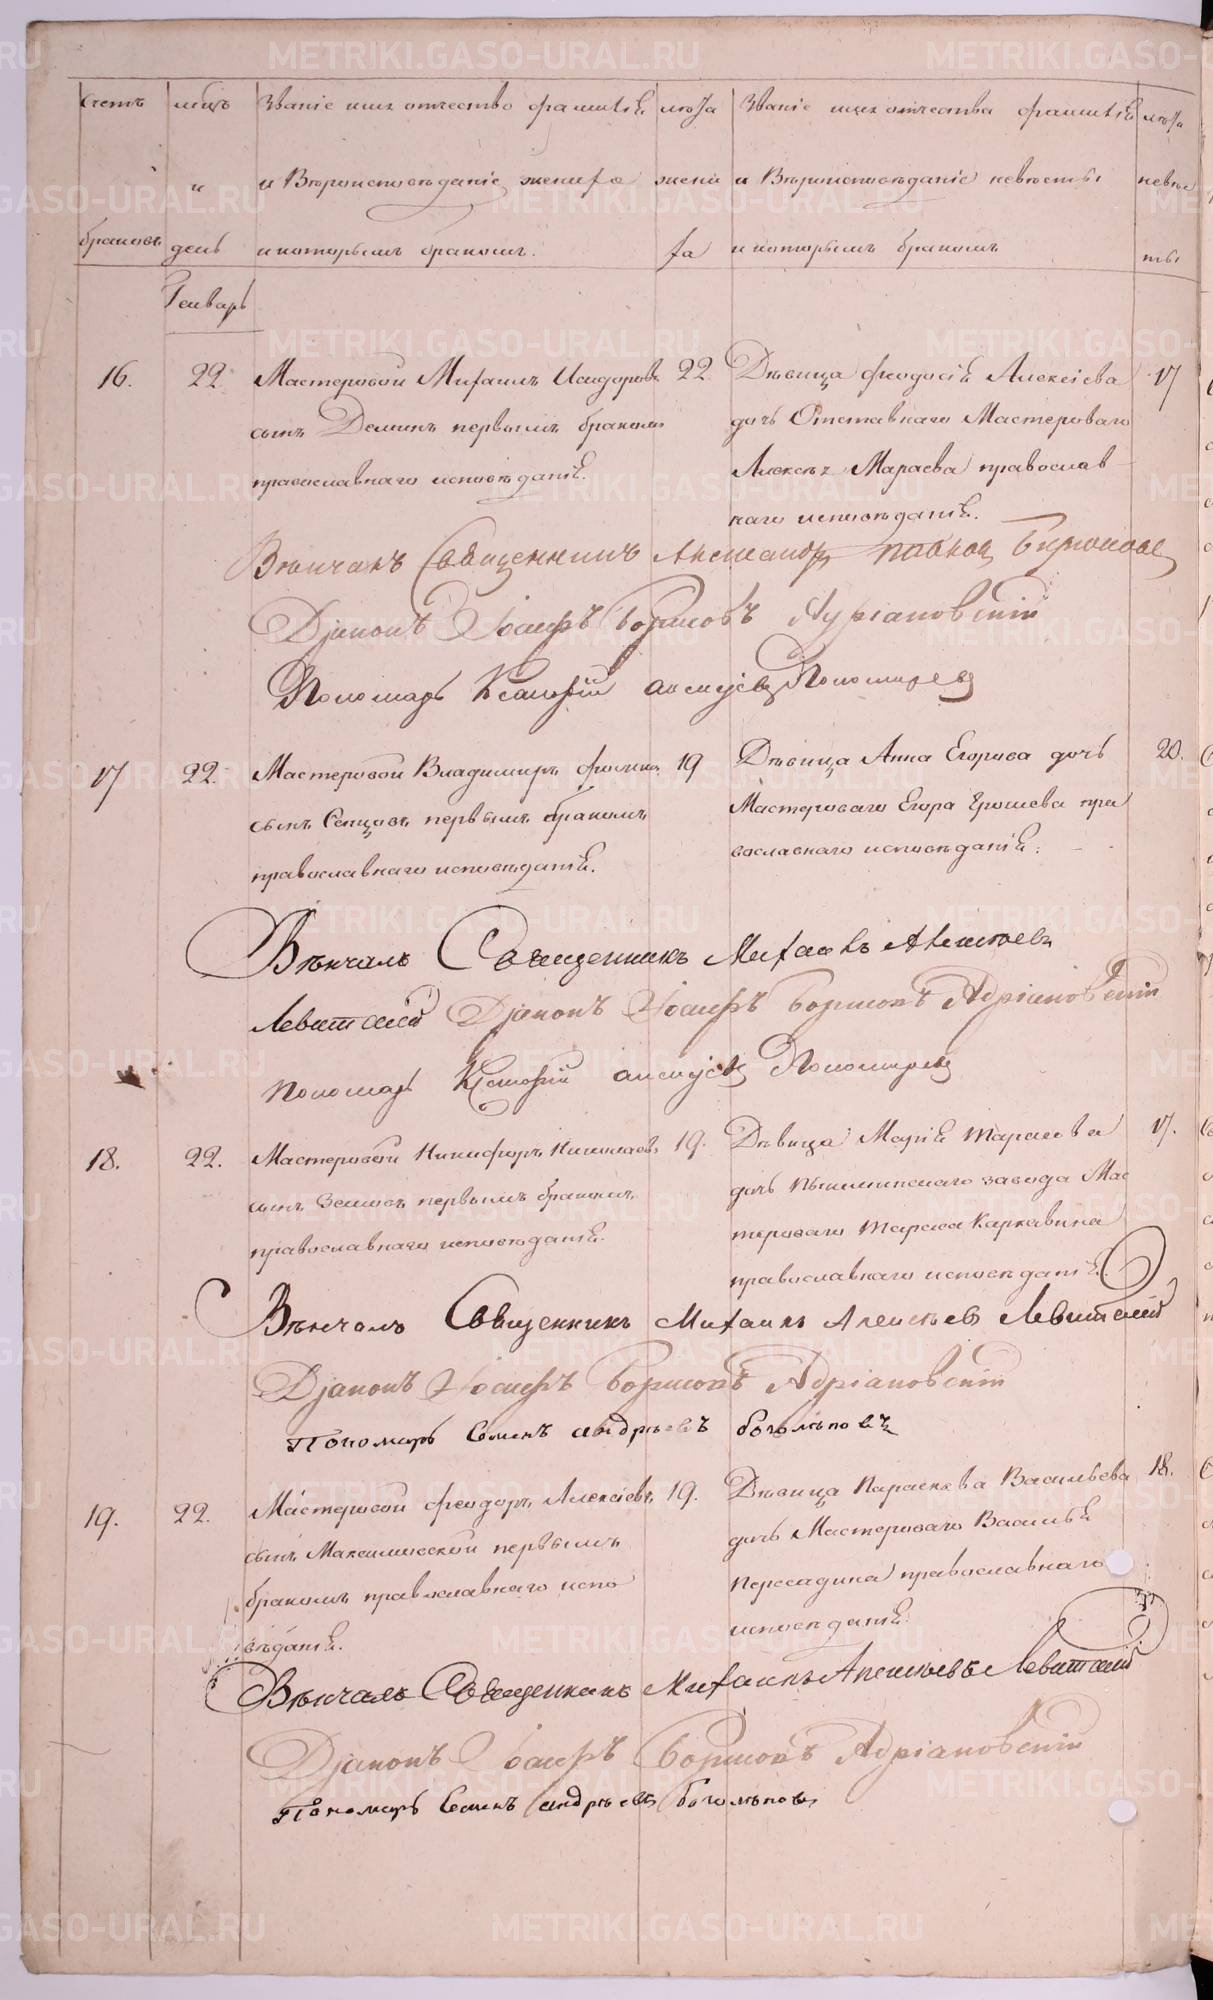 Счетъ мѣць Званіе имя отчество фамилія лѣта Званіе имя отчества фамилія лѣта
и и Вѣроисповѣданіе жениха жени и Вѣроисповѣданіе невѣсты невѣс
браковъ день и которымъ бракомъ. ха и которымъ бракомъ ты
Генварь
16. 22. Мастеровой Михаилъ Исидоровъ 22 Дѣвица Феодосія Алексіева 17
сынъ Деминъ первымъ бракомъ дочь Отставнаго Мастероваго
православнаго исповѣданія. Алексѣя Мараева православ
наго исповѣданія.
Вѣнчалъ Священникъ Александр
Діаконъ Іосифъ Борисовъ Адріановскій
Пономарь Пономарев
17 22. Мастеровой Владимиръ 19 Дѣвица Анна Егорова дочь 20.
сынъ первымъ бракомъ Мастероваго Егора Ершева пра
православнаго исповѣданія. вославнаго исповѣданія.
Вѣнчалъ Священникъ Михаилъ Алексѣевъ
Левитскій Діаконъ Іосифъ Борисовъ Адріановскій
Пономарь Пономарев
18. 22. Мастеровой Никифоръ Николаевъ 19. Дѣвица Марія Тарасова 17.
сынъ первымъ бракомъ дочь Пышминскаго завода Мас
православнаго исповѣданія. тероваго Тараса Каркавина
православнаго исповѣданія.
Вѣнчалъ Священникъ Михаилъ Алексѣевъ Левитскій
Діаконъ Іосифъ Борисовъ Адріановскій
Пономарь Семенъ Андрѣевъ Боголѣповъ
19. 22. Мастеровой Феодоръ Алексіевъ 19. Дѣвица Параскева Васильева 18.
сынъ первымъ дочь Мастероваго Василья
бракомъ православнаго испо Пересадина православнаго
вѣданія. исповѣданія
Вѣнчалъ Священникъ Михаилъ Алексѣевъ Левитскій
Діаконъ Іосифъ Борисовъ Адріановскій
Пономарь Семенъ Андрѣевъ Боголѣповъ
METRIKI.GASO-URAL.RU